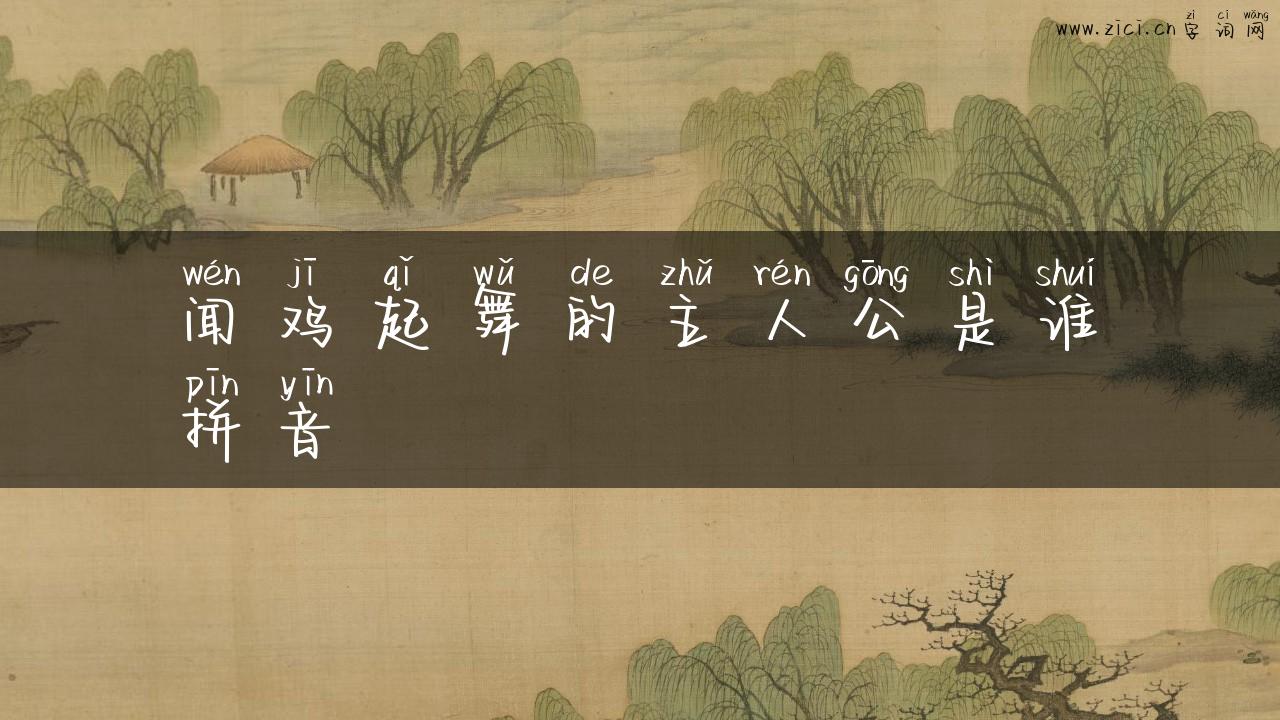 zì cí wǎng
www.zici.cn 字词网
wén jī qǐ wǔ de zhǔ rén gōng shì shuí
闻鸡起舞的主人公是谁
pīn yīn
拼音